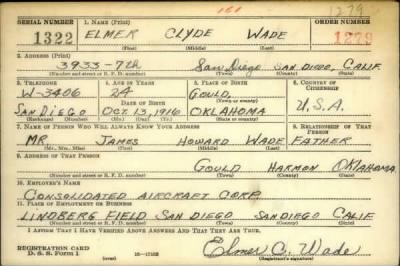 161
1279
SERIAL NUMBER 1. NAME (Print) ORDER NUMBER
1322 ELMER CLYDE WADE 1279
(First) (Middle) (Last)
2. ADDRESS (Print)
3933-7th San Diego SAN DIEGO, CALIF.
(Number and street or R. F. D. number) (Town) (County) (State)
3. TELEPHONE 4. AGE IN YEARS 5. PLACE OF BIRTH 6. COUNTRY OF CITIZENSHIP
W-3406 24 GOULD,
DATE OF BIRTH (Town or county)
SAN DIEGO OCT. 13, 1916 OKLAHOMA U.S.A.
(Exchange) (Number) (Mo.) (Day) (Yr.) (State or country)
7. NAME OF PERSON WHO WILL ALWAYS KNOW YOUR ADDRESS 8. RELATIONSHIP OF THAT PERSON
MR. JAMES HOWARD WADE FATHER
(Mr., Mrs., Miss) (First) (Middle) (Last)
9. ADDRESS OF THAT PERSON
GOULD HARMON OKLAHOMA
(Number and street or R. F. D. number) (Town) (County) (State)
10. EMPLOYER'S NAME
CONSOLIDATED AIRCRAFT CORP.
11. PLACE OF EMPLOYMENT OR BUSINESS
LINDBERG FIELD SAN DIEGO SAN DIEGO CALIF
(Number and street or R. F. D. number) (Town) (County) (State)
I AFFIRM THAT I HAVE VERIFIED ABOVE ANSWERS AND THAT THEY ARE TRUE.
REGISTRATION CARD
D. S. S. Form 1 16-17105 Elmer C. Wade
(Registrant's signature)